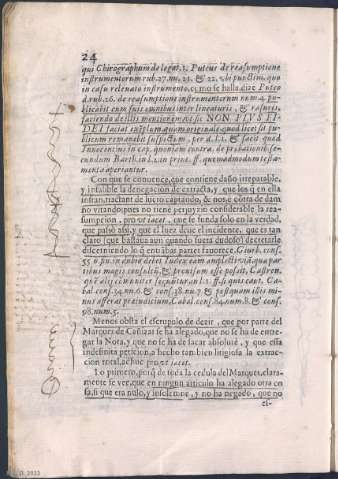 24
qui Chirographum de legat. 3. Puteus de reasumptione
instrumentorum rub. 27. nu. 21. & 22. vbi punctim, quo
in casu relenato instrumento, como se halla, dize Puteo
d. rub. 26. de reasumptione instrumentorum num. 4.
publicabit eum suis omnibus interlineaturis, & rasuris,
faciendo de illis mentionem vt sic NON PLVS FI-
DEI faciat exemplum quam originale, quod licet sit pu-
blicum remanebit suspectum, per d. l. 2. & facit quod
Innocentius in cap. quoniam contra, de probationib. se-
cundum Barth. in l. 2. in princ. ff. quemadmodum testa-
menta aperiantur.
Con que se convence, que contiene daño irreparable,
y infalible la denegacion de extracta, y que los q̃ en ella
instan, tractant de lucro captando, & nos è contra de dam
no vitando, pues no tiene perjuyzio considerable la rea-
sumpcion, prout iacet, que se funda solo en la verdad,
que passò assi, y que el Iuez dè el incidente, que es tan
claro (que bastava aun quando fuera dudoso) decretarle
diziendo lo q̃ entrambas partes favorece. Giurb. cons.
55. ó pu. in dubio debet Iudex eam amplecti viã, qua par-
tibus magis consultũ, & provisum esse possit, Castren.
quẽ alij communiter sequuntur in l. 1. ff. si quis caut. Ca-
bal. cons. 34. nu. 6. & cons. 38. nu. 7. & postquam ibi mi-
nus afferat præiudicium, Cabal. cons. 84. num. 8. & cons.
98. num. 5.
Menos obsta el escrupulo de dezir, que por parte del
Marques de Coñizas se ha alegado, que no se ha de entre-
gar la Nota, y que no se ha de sacar absolutè, y que esta
indefinita peticion, a hecho tan bien litigiosa la extrac-
cion total, ad huc prout iacet.
Lo primero, porq̃ de toda la cedula del Marques, clara-
mente se ve, que en ningun articulo ha alegado otra co
sa, si que era nulo, y insolemne, y no ha negado, que no
el-